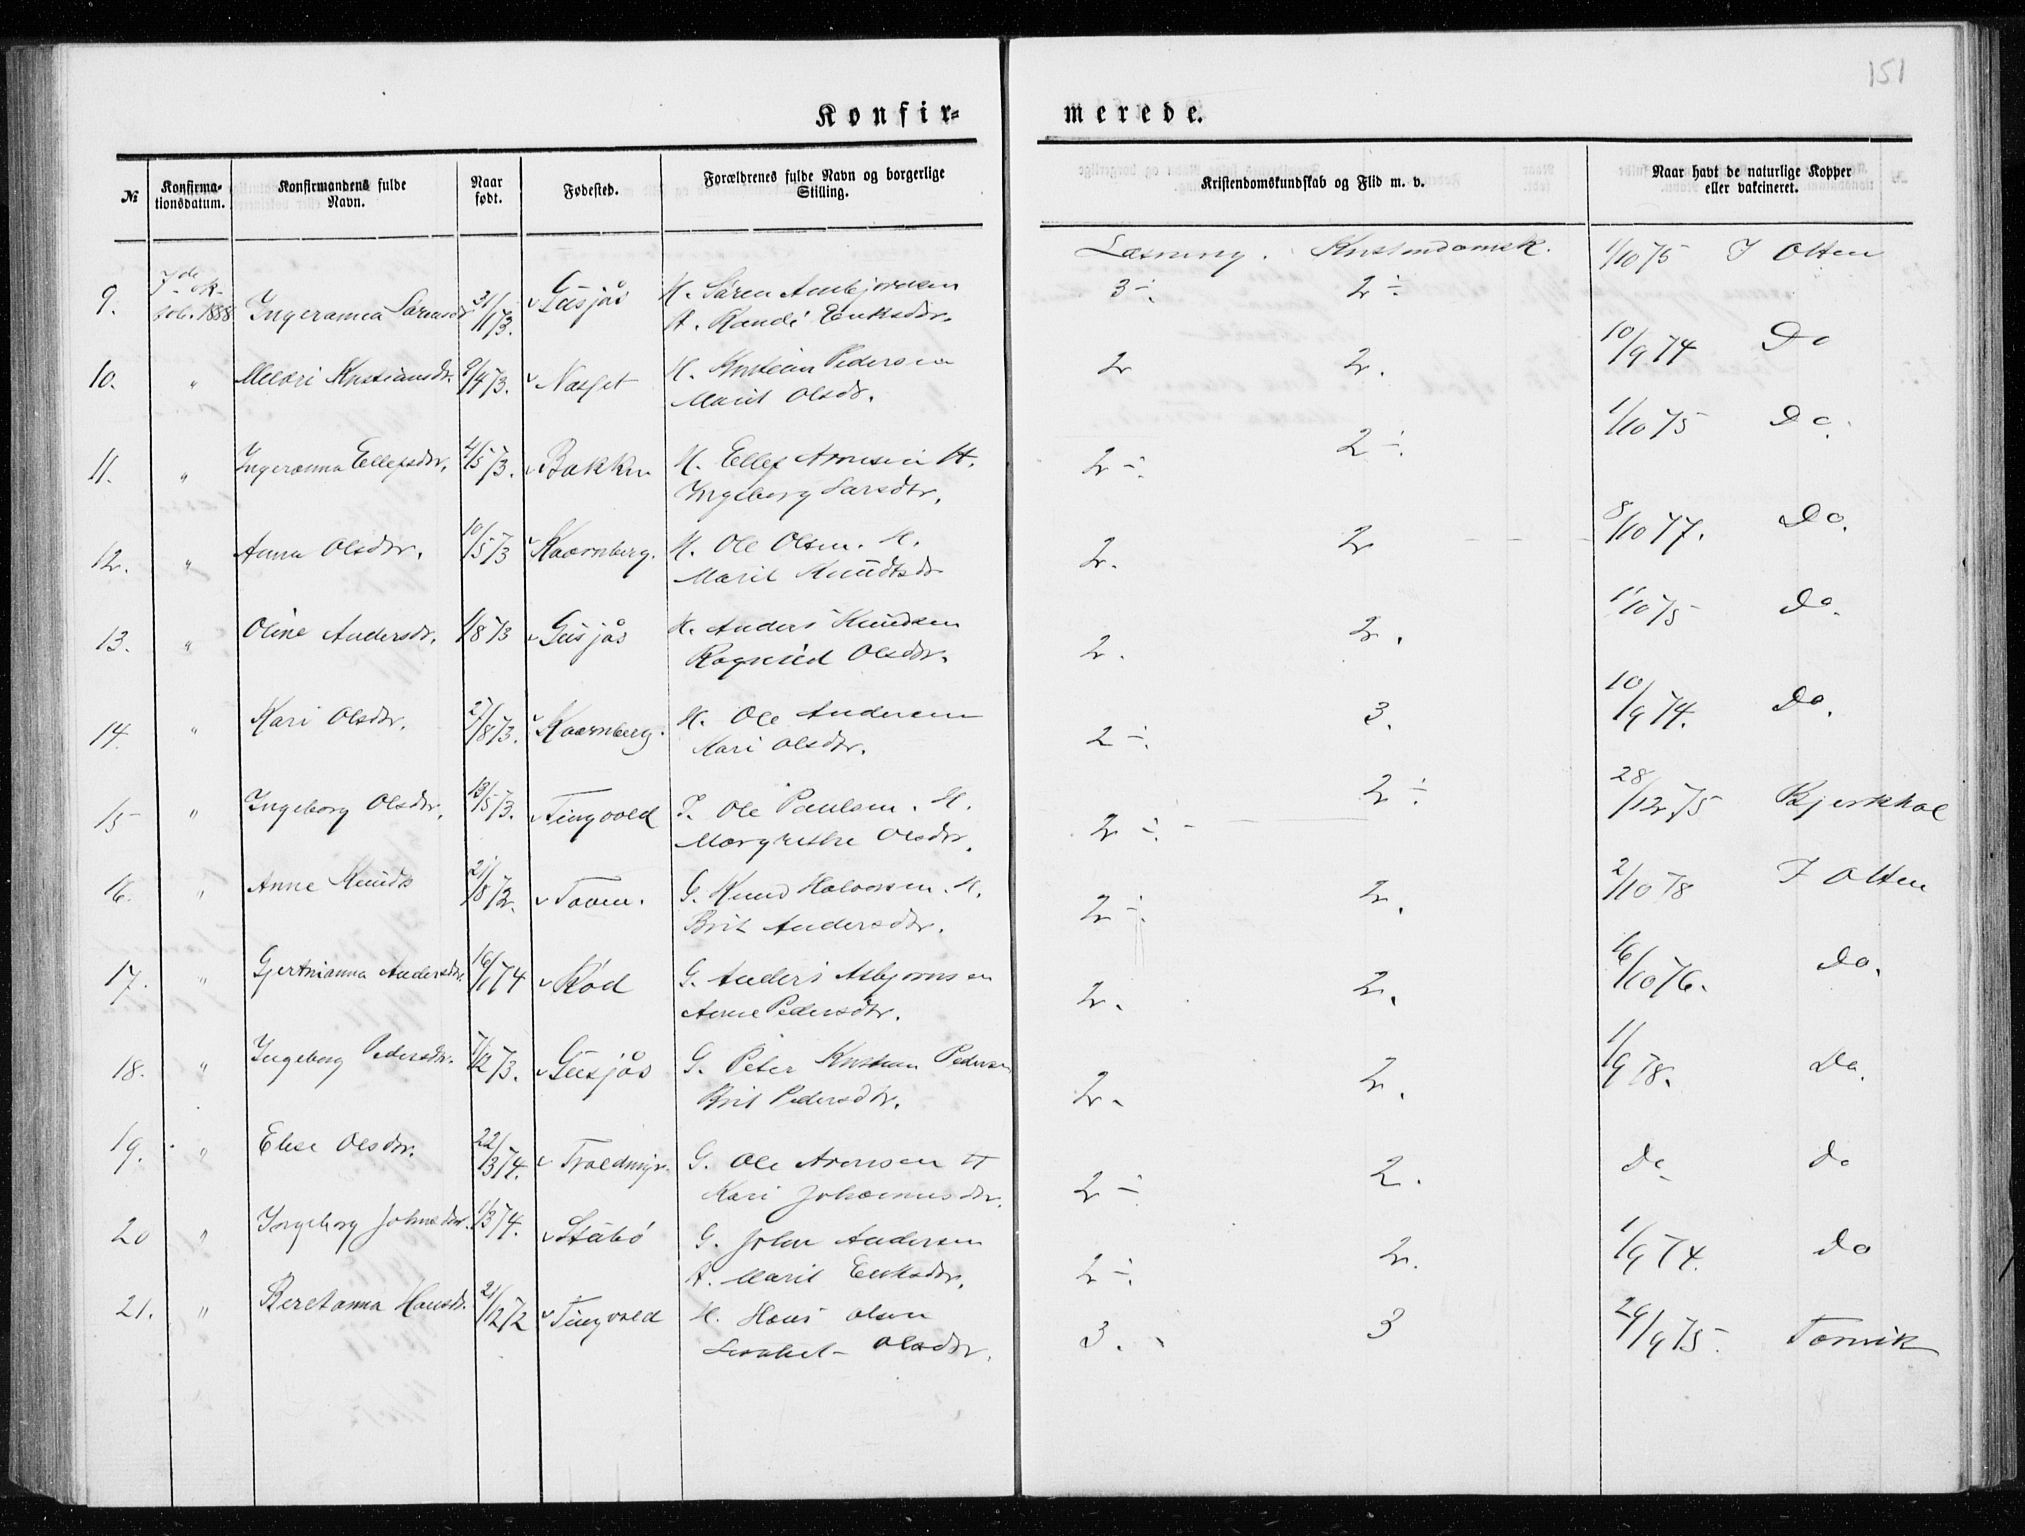 151
Konfir=
merede.
№
Konfirma-
tionsdatum.
Konfirmandens fulde
Navn.
Naar
født.
Fødested.
Forældrenes fulde Navn og borgerlige
Stilling.
Kristendomskundskab og Flid m. v.
Naar havt de naturlige Kopper
eller vakcineret.
Læsning. Kristendomsk.
9. 7de Ok-
tob. 1888. Ingeranna Sørensdr 31/1173. Gusjås H. Søren Arnbjørnsen
A. Randi Eriksdtr. 3 ÷. 2 ÷ 1/1075 I Olsen
10. " Kristiansdr. 9/473. Nasjet H. Kristian Pedersen
Marit Olsdr. 2 2. 10/974 Do
11. " Ingeranna Ellefsdtr. 4/573. Bakken H. Ellef Arnesen A.
Ingeborg Larsdtr. 2 ÷. 2 ÷. 1/1075 Do.
12. " Anna Olsdtr. 10/573 Kaarnberg. H. Ole Olsen. H.
Marit Knudtsdr 2. 2 8/1077. Do.
13. " Oline Andersdr. 1/873 Gusjås H. Anders Knudsen
Ragnild Olsdtr. 2. 2. 1/1075 Do.
14. " Kari Olsdtr. 27/873. Kaarnberg. H. Ole Andersen
Kari Olsdtr. 2 ÷. 3. 10/974. Do.
15 " Ingeborg Olsdtr. 13/573. Tingvold I. Ole Paulsen. H.
Margrethe Olsdtr. 2 ÷. 2 ÷. 28/1275 Bjerkhol
16. " Anne Knuds 21/872. Toven. G. Knud Halvorsen. H.
Brit Andersdtr. 2 ÷. 2. 2/1078 I Olsen
17. " Gjertrianna Andersdtr 16/174 Rød G. Anders Asbjørnsen
Anne Pedersdtr. 2. 2. 16/1076. Do.
18. " Ingeborg Pedersdtr. 7/1273. Gusjås G. Peter Kristian Pedersen
Brit Pedersdtr. 2. 2. 1/978. Do.
19. " Elise Olsdtr. 22/374. Troldmyr. G. Ole Arensen A
Kari Johannesdtr. 2 ÷ 2. Do Do
20 " Ingeborg Johnsdtr. 1/374. Stubø G. John Andersen
A. Marit Eriksdtr. 2 ÷. 2. 1/974. Do
21. " Beretanna Hansdr. 21/1272 Tingvold H. Hans Olsen
Lisabet Olsdtr. 3. 3 29/975. Torvik